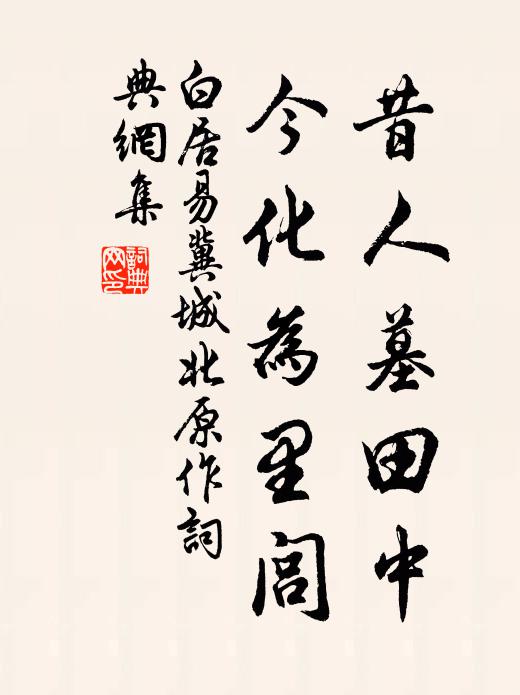 昔人墓田中
今化為里閭
白居易冀城北原作詞
典網集
詞典
网印